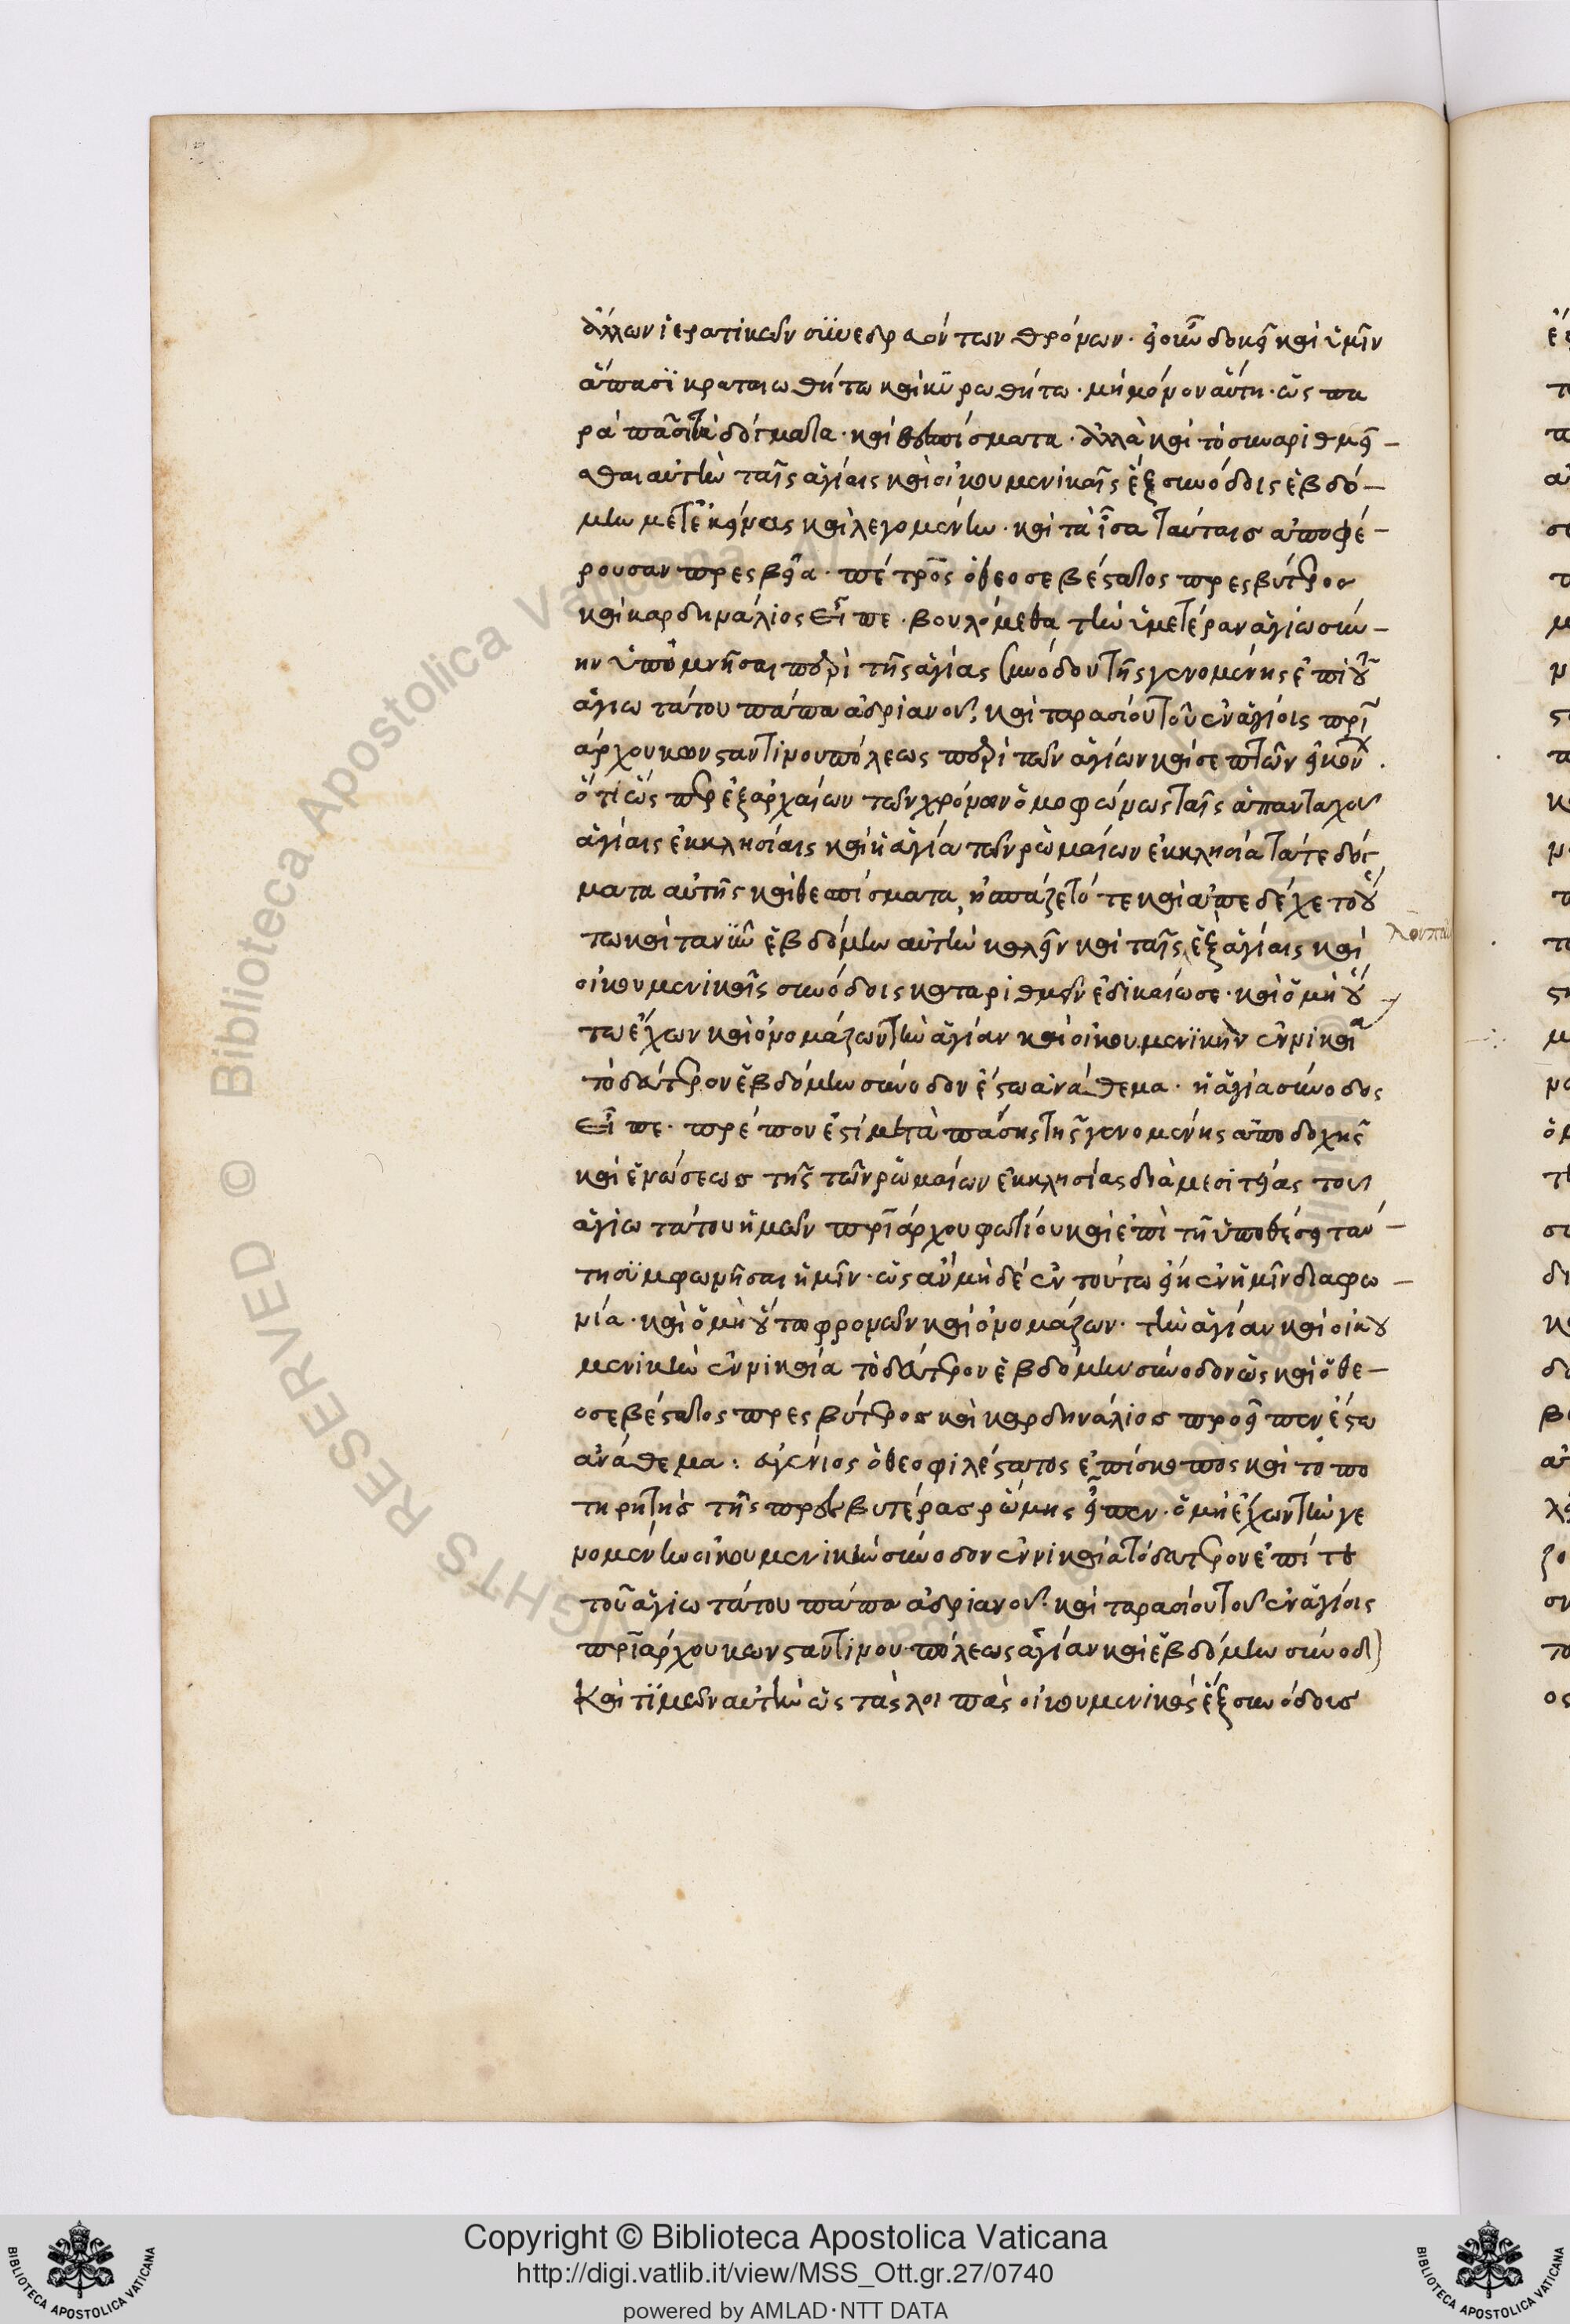 ἄλλων ἱερατικῶν συνεδρευόντων θρόνων. εἰ οὖν δοκεῖ καὶ ὑμῖν
ἅπασι κραταιωθήτω καὶ κυρωθήτω. μὴ μόνον αὕτη. ὡς πα
ρὰ πᾶσι τὰ δόγματα. καὶ θεσπίσματα. ἀλλὰ καὶ τὸ συναριθμεῖ-
σθαι αὐτὴν ταῖς ἁγίαις καὶ οἰκουμενικαῖς ἓξ συνόδοις ἑβδό-
μην μετ' ἐκείνας καὶ λεγομένην. καὶ τὰ ἶσα ταύταις ἀποφέ-
ρουσαν πρεσβεῖα. πέτρος ὁ θεοσεβέστατος πρεσβύτερος
καὶ καρδηνάλιος εἶπε. βουλόμεθα τὴν ὑμετέραν ἁγιωσύ-
νην ὑπομνῆσαι περὶ τῆς ἁγίας συνόδου τῆς γενομένης ἐπὶ τοῦ
ἁγιωτάτου πάπα ἀδριανοῦ, καὶ ταρασίου τοῦ ἐν ἁγίοις πρι
άρχου κωνσταντινουπόλεως περὶ τῶν ἁγίων καὶ σεπτῶν εἰκόνων.
ὅτι ὥσπερ ἐξ ἀρχαίων τῶν χρόνων ὁμοφώνως ταῖς ἁπανταχοῦ
ἁγίαις ἐκκλησίαις καὶ ἡ ἁγία τῶν ῥωμαίων ἐκκλησία τά τε δόγ
ματα αὐτῆς καὶ θεσπίσματα, ἠσπάζετό τε καὶ ἀπεδέχετο οὕ
τω καὶ τανῦν ἑβδόμην αὐτὴν καλεῖν καὶ ταῖς ἓξ ἁγίαις καὶ
οἰκουμενικαῖς συνόδοις καταριθμεῖν ἐδικαίωσε. καὶ ὁ μὴ οὕ
τω ἔχων καὶ ὀνομάζων τὴν ἁγίαν καὶ οἰκουμενικὴν ἐν νικαία
τὸ δεύτερον ἑβδόμην σύνοδον ἔστω ἀνάθεμα. ἡ ἁγία σύνοδος
εἶπε. πρέπον ἐστί μετὰ πάσης τῆς γενομένης ἀποδοχῆς
καὶ ἑνώσεως τῆς τῶν ῥωμαίων ἐκκλησίας διὰ μεσιτείας τοῦ
ἁγιωτάτου ἡμῶν πριάρχου φωτίου καὶ ἐπὶ τῆ ὑποθέσει ταύ-
τη συμφωνῆσαι ἡμῖν. ὡς ἂν μὴ δὲ ἐν τούτω εἴη ἐν ἡμῖν διαφω-
νία. καὶ ὁ μὴ οὕτω φρονῶν καὶ ὀνομάζων. τὴν ἁγίαν καὶ οἰκου
μενικὴν ἐν νικαία τὸ δεύτερον ἑβδόμην σύνοδον ὡς καὶ ὁ θε-
οσεβέστατος πρεσβύτερος καὶ καρδηνάλιος προεῖπεν ἔστω
ἀνάθεμα: εὐγένιος ὁ θεοφιλέστατος ἐπίσκοπος καὶ τοπο
τηρητὴς τῆς πρεσβυτέρας ῥώμης εἶπεν. ὁ μὴ ἔχων τὴν γε
νομένην οἰκουμενικὴν σύνοδον ἐν νικαία τὸ δεύτερον ἐπί τε
τοῦ ἁγιωτάτου πάπα ἀδριανοῦ. καὶ ταρασίου τοῦ ἐν ἁγίοις
πριάρχου κωνσταντινουπόλεως ἁγίαν καὶ ἑβδόμην σύνοδον
καὶ τιμῶν αὐτὴν ὡς τὰς λοιπὰς οἰκουμενικὰς ἓξ συνόδους